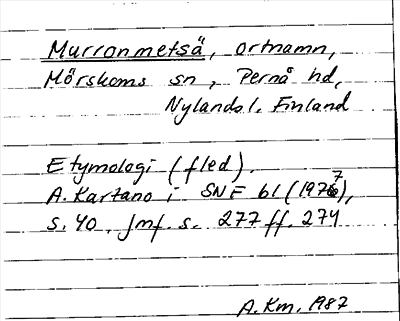 Murronmetsä, ortnamn,
Mörskoms sn, Pernå hd,
Nylands l. Finland
Etymologi (fled).
A. Kartano i SNF 61 (1977),
s. 40. Jmf. s. 277 ff. 274
A. Km. 1987